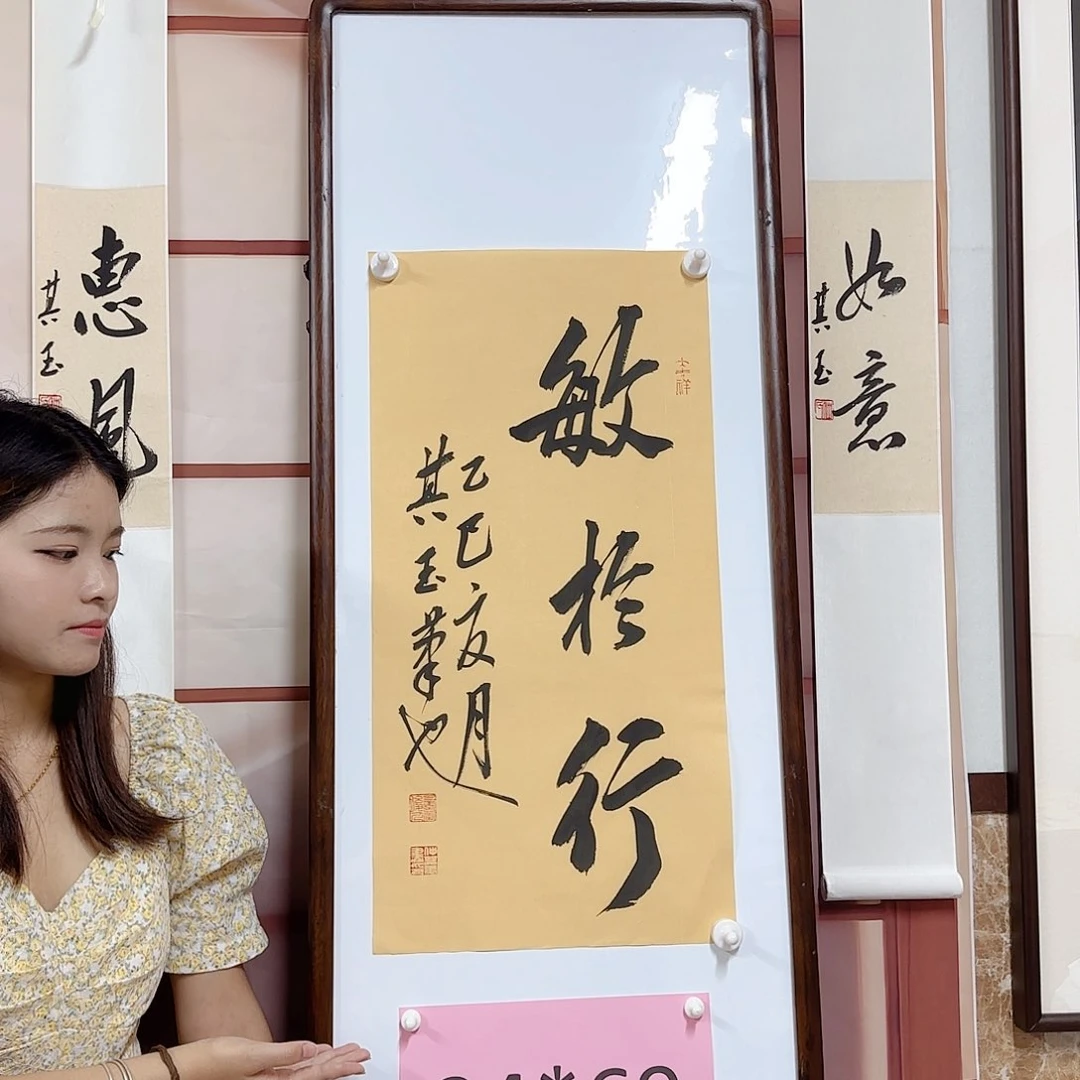 敏於行
乙巳夏月
其玉筆也
惠風
其玉
如意
其玉